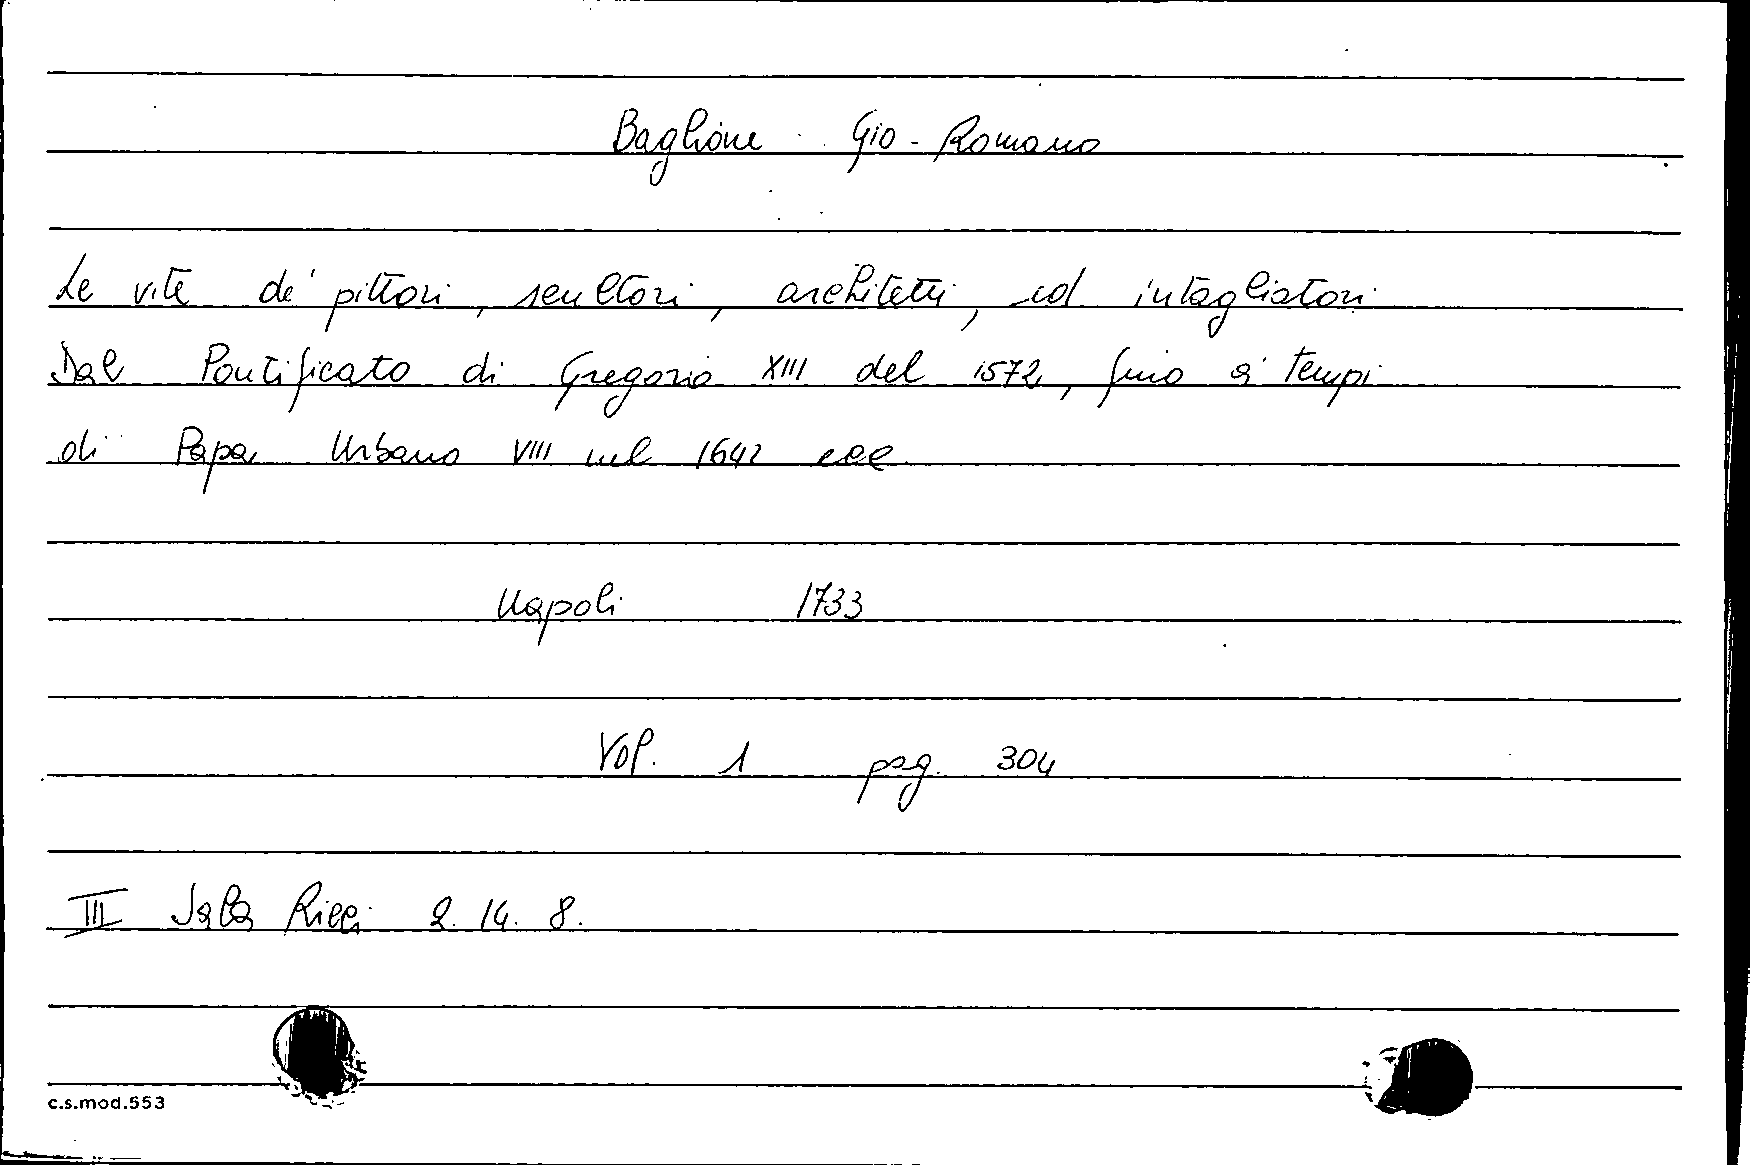 Baglione Gio - Romano
Le vite de' pittori, scultori, architetti, ed intagliatori
Dal Pontificato di Gregorio XIII del 1572, fino a' tempi
di Papa Urbano VIII nel 1642 ecc
Napoli 1733
Vol. 1 pag. 304
III Sala Ricci 2. 14. 8.
c.s.mod.553